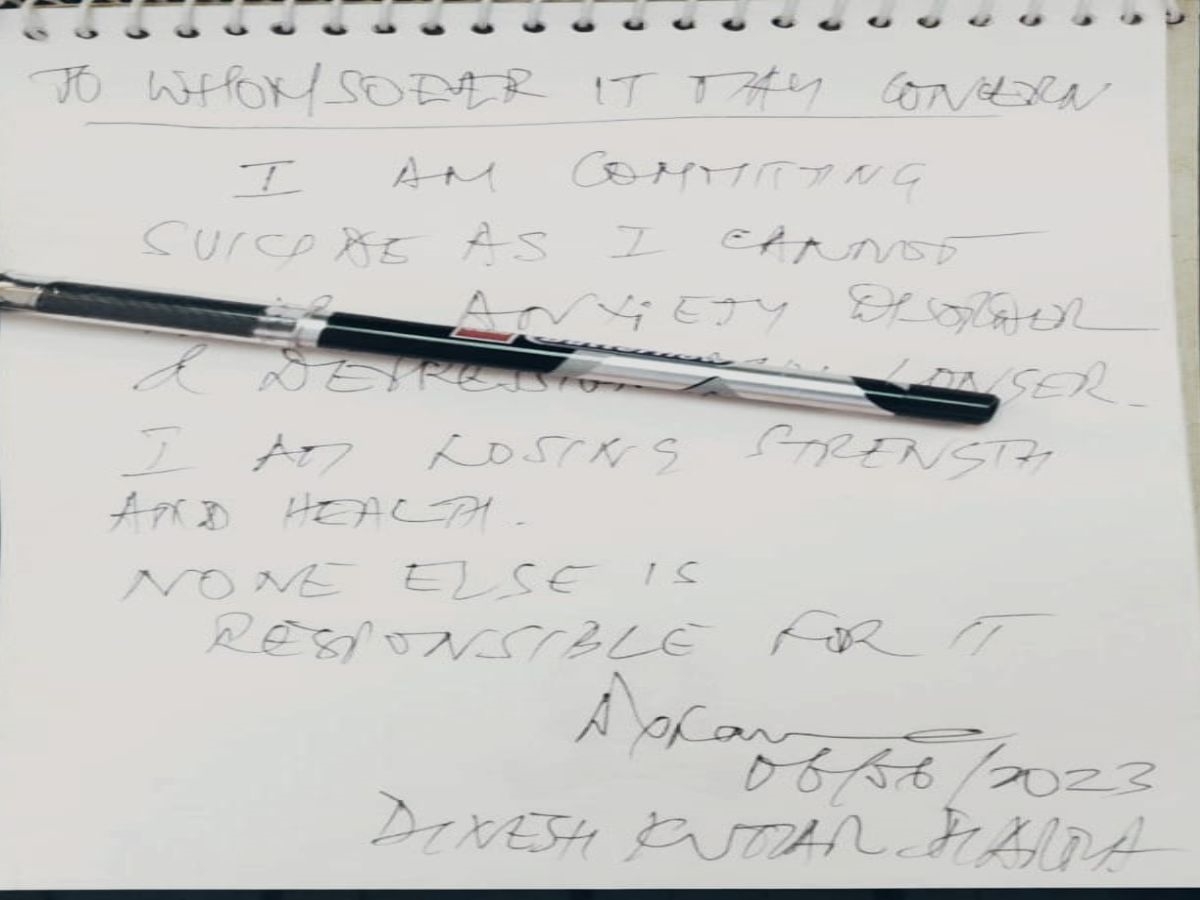 TO WHOM/SOEVER IT MAY CONCERN
I AM COMMITTING
SUICIDE AS I CANNOT
ANXIETY DISORDER
& DEPRESSION LONGER.
I AM LOSING STRENGTH
AND HEALTH.
NONE ELSE IS
RESPONSIBLE FOR IT
06/06/2023
DINESH KUMAR